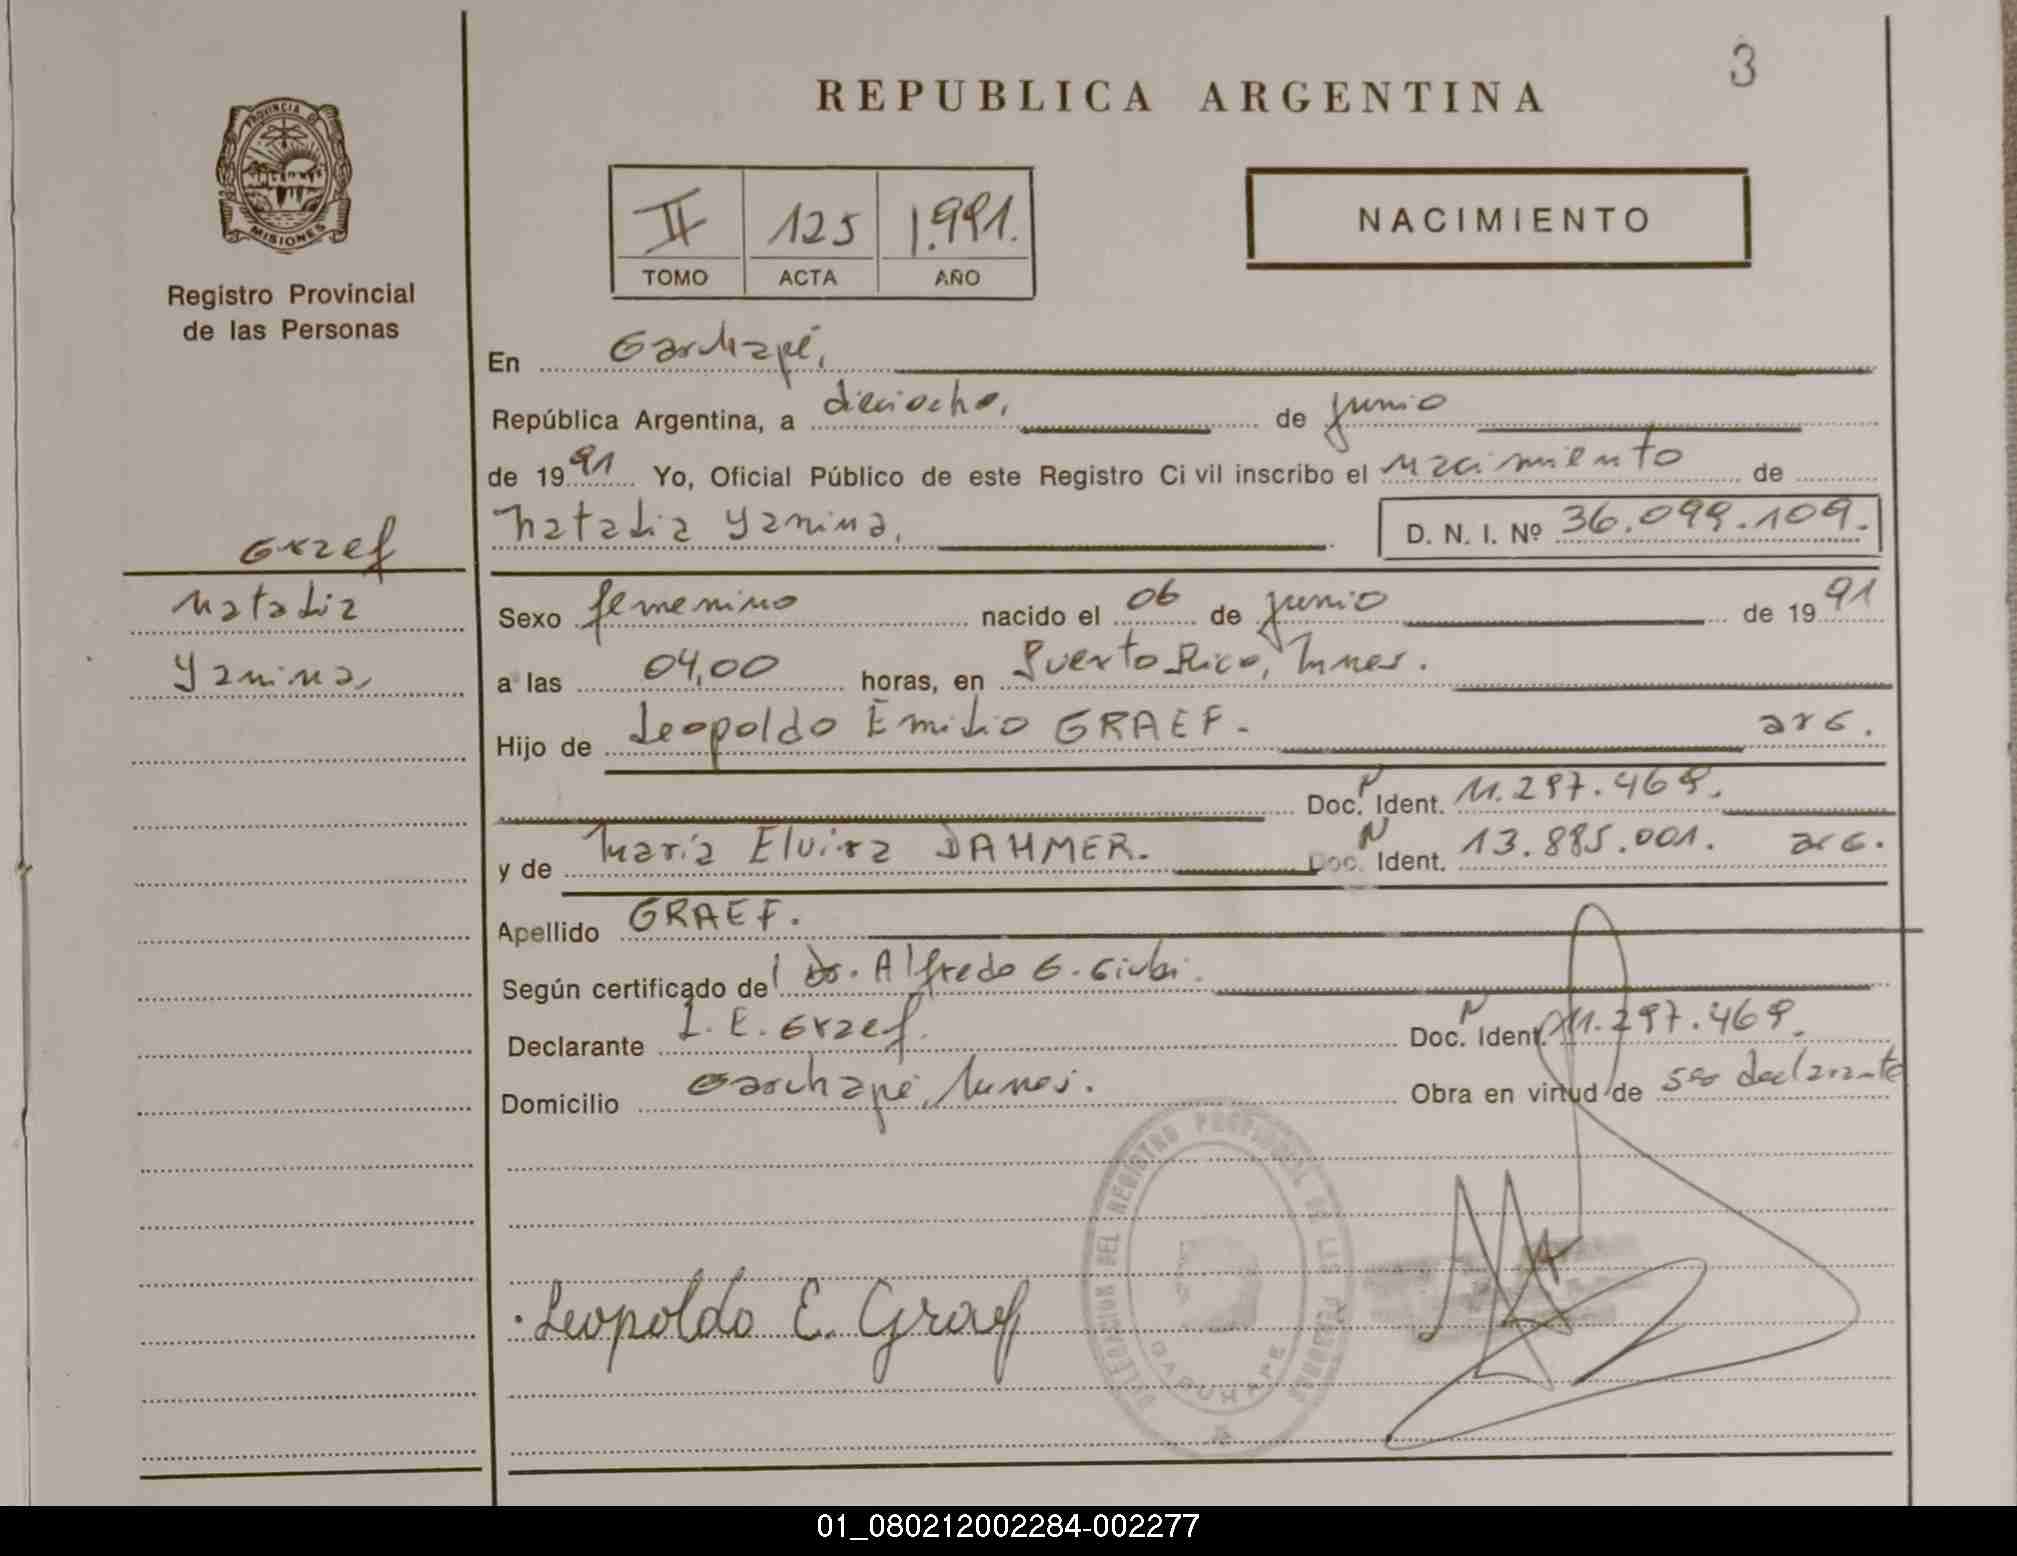 3
REPUBLICA ARGENTINA
PROVINCIA DE
MISIONES
Registro Provincial
de las Personas
II 125 1.991.
TOMO ACTA AÑO
NACIMIENTO
En Garuhapé,
República Argentina, a dieciocho, de junio
de 1991 Yo, Oficial Público de este Registro Civil inscribo el nacimiento de
Natalia Yanina, D. N. I. Nº 36.099.109.
Graef
Natalia
Yanina,
Sexo femenino nacido el 06 de junio de 1991
a las 04,00 horas, en Puerto Rico, Mnes.
Hijo de Leopoldo Emilio GRAEF. arg.
Doc. N Ident. 11.297.469.
y de María Elvira DAHMER. Doc. N Ident. 13.885.001. arg.
Apellido GRAEF.
Según certificado del Dr. Alfredo G.
Declarante L. E. Graef. Doc. N Ident. 11.297.469.
Domicilio Garuhapé, Mnes. Obra en virtud de ser declarante
DELEGACION DEL REGISTRO PROVINCIAL DE LAS PERSONAS
GARUHAPE
Leopoldo E. Graef
01_080212002284-002277